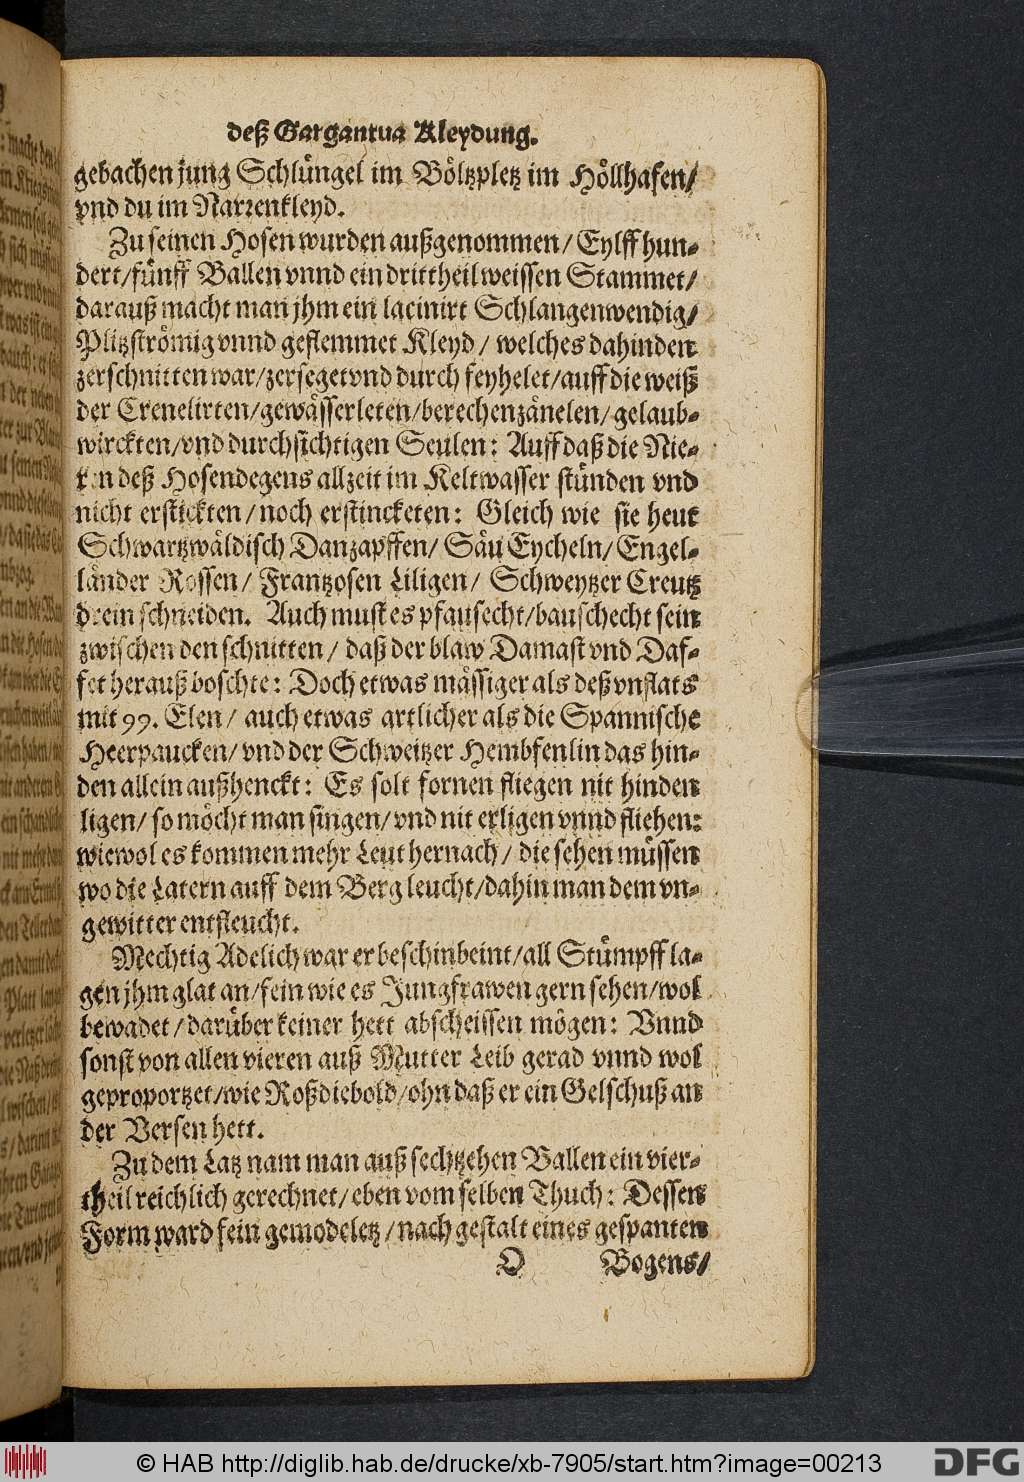 deß Gargantua Kleydung.
gebachen jung Schlüngel im Böltzpletz im Höllhafen/
vnd du im Narrenkleyd.
Zu seinen Hosen wurden außgenommen/ Eylff hun-
dert/ fünff Ballen vnnd ein drittheil weissen Stammet/
darauß macht man jhm ein lacinirt Schlangenwendig/
Plitzströmig vnnd geflemmet Kleyd/ welches dahinden
zerschnitten war/ zerseget vnd durch feyhelet/ auff die weiß
der Crenelirten/ gewässerleten/ berechenzänelen/ gelaub-
wirckten/ vnd durchsichtigen Seulen: Auff daß die Nie-
ren deß Hosendegens allzeit im Keltwasser stünden vnd
nicht erstickten/ noch erstincketen: Gleich wie sie heut
Schwartzwäldisch Danzapffen/ Säu Eycheln/ Engel-
länder Rossen/ Frantzosen Liligen/ Schweytzer Creutz
drein schneiden. Auch must es pfausecht/ bauschecht sein
zwischen den schnitten/ daß der blaw Damast vnd Daf-
fet herauß boschte: Doch etwas mässiger als deß vnflats
mit 99. Elen/ auch etwas artlicher als die Spannische
Heerpaucken/ vnd der Schweitzer Hembfenlin das hin-
den allein außhenckt: Es solt fornen fliegen nit hinden
ligen/ so möcht man singen/ vnd nit erligen vnnd fliehen:
wiewol es kommen mehr Leut hernach/ die sehen müssen
wo die Latern auff dem Berg leucht/ dahin man dem vn-
gewitter entfleucht.
Mechtig Adelich war er beschinbeint/ all Stümpff la-
gen jhm glat an/ fein wie es Jungfrawen gern sehen/ wol
bewadet/ darüber keiner hett abscheissen mögen: Vnnd
sonst von allen vieren auß Mutter Leib gerad vnnd wol
geproportzet/ wie Roßdiebold/ ohn daß er ein Gelschuß an
der Versen hett.
Zu dem Latz nam man auß sechtzehen Ballen ein vier-
theil reichlich gerechnet/ eben vom selben Thuch: Dessen
Form ward fein gemodeletz/ nach gestalt eines gespanten
O Bogens/
© HAB http://diglib.hab.de/drucke/xb-7905/start.htm?image=00213
DFG